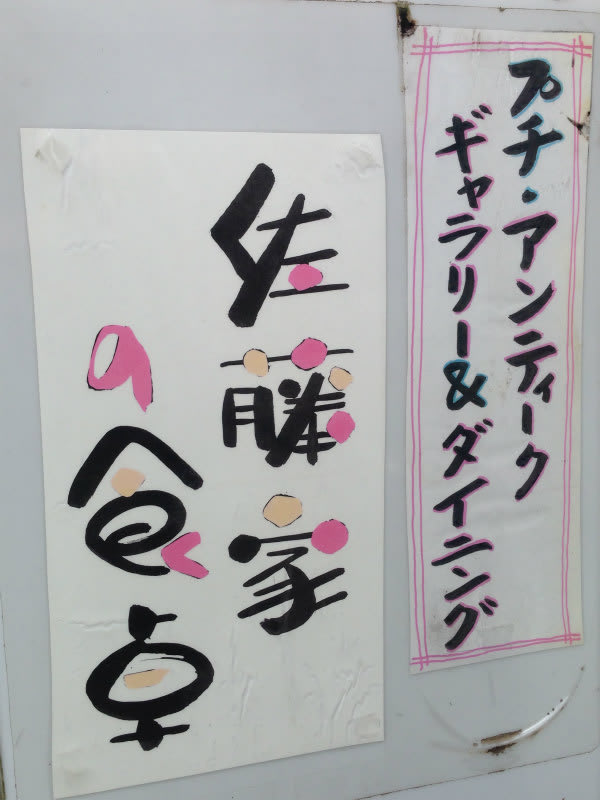 プチ・アンティーク
ギャラリー&ダイニング
佐藤家
の食卓